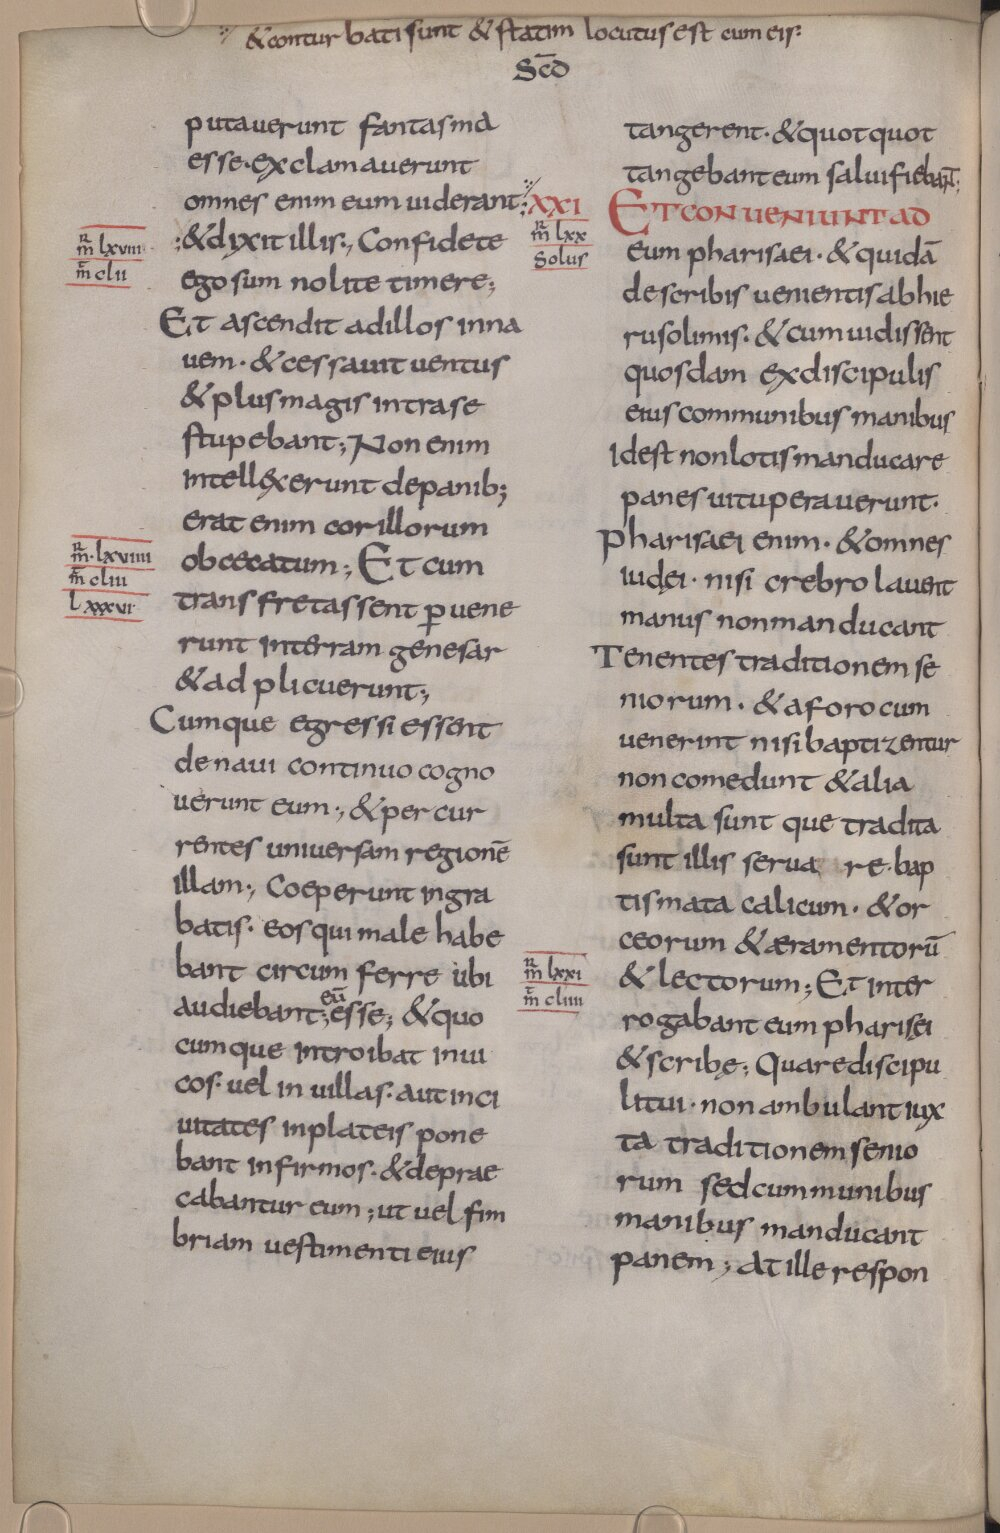 ⁘ &conturbati sunt & statim locutus est cum eis:
Scd̄
putauerunt fantasma
esse· exclamauerunt
omnes enim eum uiderant;
m̄R lxviii
m̄T clii
:& dyxit illis:, Confidete
ego sum nolite timere;
Et ascendit ad illos in na
uem· & cessauit uentus
& plus magis intra se
stupebant; Non enim
intellexerunt de panib;
erat enim cor illorum
m̄R· lxviiii
m̄T cliii
lxxxvi
obcecatum; Et cum
transfretassent ꝑuene
runt in terram genesar
& adplicuerunt;
Cumque egressi essent
de naui continuo cogno
uerunt eum:, & percur
rentes uniuersam regionē
illam:, Coeperunt in gra
batis· eos qui male habe
bant circum ferre ubi
audiebant; eū esse; & quo
cumque introibat in ui
cos· uel in uillas· aut in ci
uitates in plateis pone
bant infirmos· & deprae
cabantur eum; ut uel fim
briam uestimenti eius
tangerent· & quotquot
tangebant eum salui fiebant̄;
XXI
m̄R lxx
Solus
ET CONUENIUNT AD
eum pharisaei· & quidā
de scribis uenientis ab hie
rusolimis· & cum uidissent
quosdam ex discipulis
eius communibus manibus
Id est non lotis manducare
panes uituperauerunt·
Pharisaei enim· & omnes
iudęi· nisi crebro lauent
manus non manducant
Tenentes traditionem se
niorum· & a foro cum
uenerint nisi baptizentur
non comedunt & alia
multa sunt que tradita
sunt illis serua re· bap
tismata calicum· & or
ceorum & æramentorū
m̄R lxxi
m̄T cliiii
& lectorum; Et inter
rogabant eum pharisęi
& scribę; Quare discipu
li tui· non ambulant iux
ta traditionem senio
rum sed cummunibus
manibus manducant
panem; At ille respon